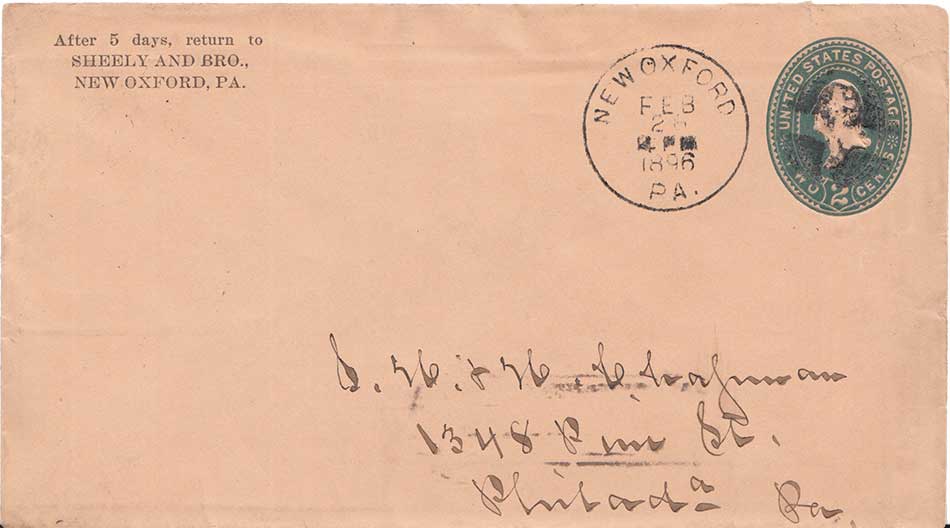 After 5 days, return to
SHEELY AND BRO.,
NEW OXFORD, PA.
NEW OXFORD
FEB
1896
PA.
UNITED STATES POSTAGE
TWO 2 CENTS
S. H. & H. Chapman
1348 Pine St.
Philadª Pa